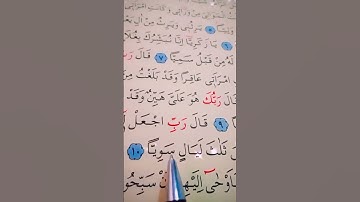 وَرَآئِى وَكَانَتِ امْرَاَتِى
وَلِيًّا ۙ ٥ يَّرِثُنِىْ وَيَرِثُ مِنْ اٰلِ
٦ يٰزَكَرِيَّاۤ اِنَّا نُبَشِّرُكَ بِغُلٰمِ
لَهٗ مِنْ قَبْلُ سَمِيًّا ٧ قَالَ رَبِّ
امْرَاَتِىْ عَاقِرًا وَّقَدْ بَلَغْتُ مِنَ
قَالَ رَبُّكَ هُوَ عَلَىَّ هَيِّنٌ وَّقَدْ
٩ قَالَ رَبِّ اجْعَلْ لِّىْ
ثَلٰثَ لَيَالٍ سَوِيًّا ١٠
فَاَوْحٰٓى اِلَيْهِمْ اَنْ سَبِّحُوْا